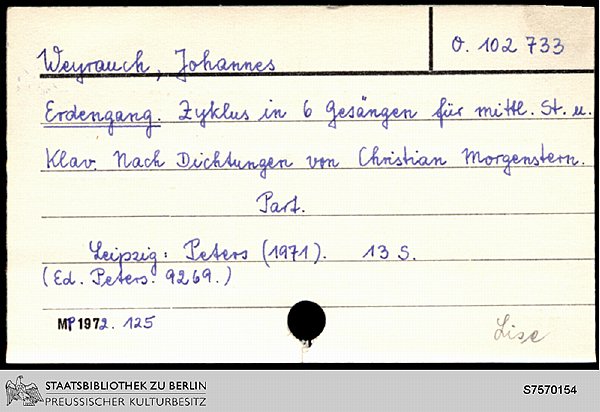 Weyrauch, Johannes
O. 102 733
Erdengang. Zyklus in 6 Gesängen für mittl. St. u.
Klav. Nach Dichtungen von Christian Morgenstern.
Part.
Leipzig: Peters (1971). 13 S.
(Ed. Peters. 9269.)
MP 1972. 125
Lise
STAATSBIBLIOTHEK ZU BERLIN
PREUSSISCHER KULTURBESITZ
S7570154